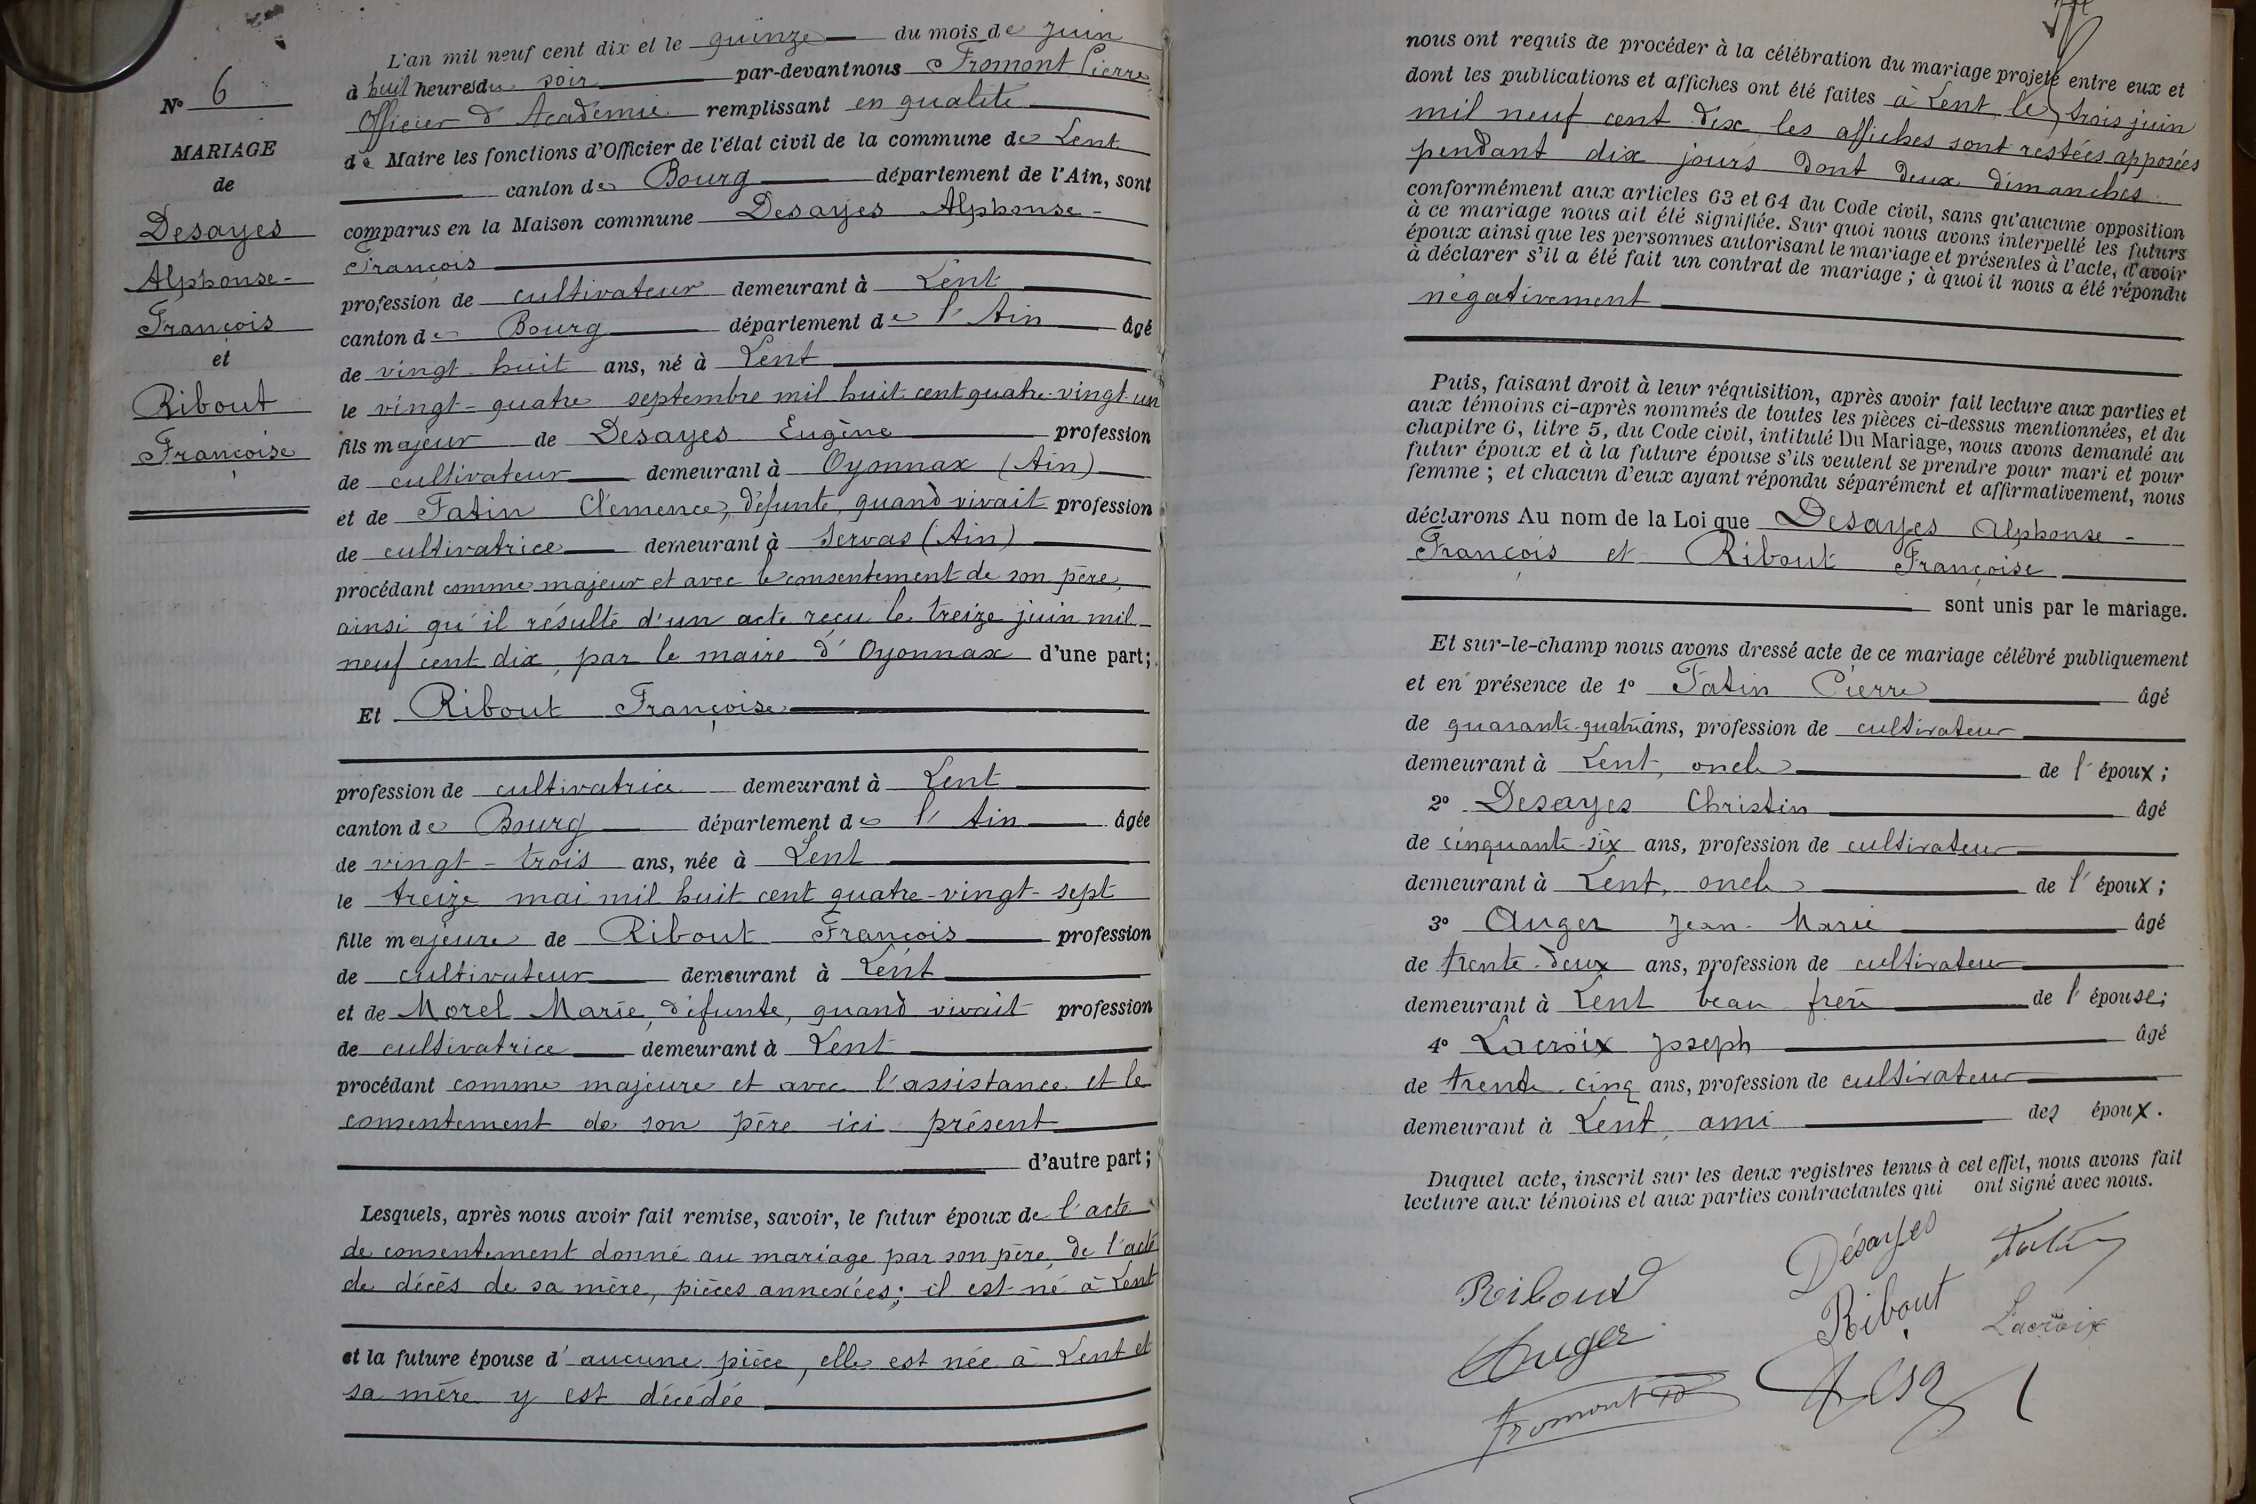 N° 6
MARIAGE
de
Desayes
Alphonse-
François
et
Ribout
Françoise
L'an mil neuf cent dix et le quinze du mois de juin
à huit heures du soir par-devant nous Fromont Pierre
Officier d'Académie remplissant en qualité
de Maire les fonctions d'Officier de l'état civil de la commune de Lent
canton de Bourg département de l'Ain, sont
comparus en la Maison commune Desayes Alphonse-
François
profession de cultivateur demeurant à Lent
canton de Bourg département de l'Ain âgé
de vingt-huit ans, né à Lent
le vingt-quatre septembre mil huit cent quatre-vingt-un
fils majeur de Desayes Eugène profession
de cultivateur demeurant à Oyonnax (Ain)
et de Tatin Clémence, défunte, quand vivait profession
de cultivatrice demeurant à Servas (Ain)
procédant comme majeur et avec le consentement de son père,
ainsi qu'il résulte d'un acte reçu le treize juin mil
neuf cent dix, par le maire d'Oyonnax d'une part;
Et Ribout Françoise
profession de cultivatrice demeurant à Lent
canton de Bourg département de l'Ain âgée
de vingt-trois ans, née à Lent
le treize mai mil huit cent quatre-vingt-sept
fille majeure de Ribout François profession
de cultivateur demeurant à Lent
et de Morel Marie, défunte, quand vivait profession
de cultivatrice demeurant à Lent
procédant comme majeure et avec l'assistance et le
consentement de son père ici présent
d'autre part;
Lesquels, après nous avoir fait remise, savoir, le futur époux de l'acte
de consentement donné au mariage par son père, de l'acte
de décès de sa mère, pièces annexées; il est né à Lent
et la future épouse d'aucune pièce, elle est née à Lent et
sa mère y est décédée
nous ont requis de procéder à la célébration du mariage projeté entre eux et
dont les publications et affiches ont été faites à Lent le trois juin
mil neuf cent dix les affiches sont restées apposées
pendant dix jours dont deux dimanches
conformément aux articles 63 et 64 du Code civil, sans qu'aucune opposition
à ce mariage nous ait été signifiée. Sur quoi nous avons interpellé les futurs
époux ainsi que les personnes autorisant le mariage et présentes à l'acte, d'avoir
à déclarer s'il a été fait un contrat de mariage; à quoi il nous a été répondu
négativement
Puis, faisant droit à leur réquisition, après avoir fait lecture aux parties et
aux témoins ci-après nommés de toutes les pièces ci-dessus mentionnées, et du
chapitre 6, titre 5, du Code civil, intitulé Du Mariage, nous avons demandé au
futur époux et à la future épouse s'ils veulent se prendre pour mari et pour
femme; et chacun d'eux ayant répondu séparément et affirmativement, nous
déclarons Au nom de la Loi que Desayes Alphonse-
François et Ribout Françoise
sont unis par le mariage.
Et sur-le-champ nous avons dressé acte de ce mariage célébré publiquement
et en présence de 1° Tatin Pierre âgé
de quarante-quatre ans, profession de cultivateur
demeurant à Lent, oncle de l'époux;
2° Desayes Christin âgé
de cinquante-six ans, profession de cultivateur
demeurant à Lent, oncle de l'époux;
3° Auger Jean-Marie âgé
de trente-deux ans, profession de cultivateur
demeurant à Lent beau-frère de l'épouse;
4° Lacroix Joseph âgé
de trente-cinq ans, profession de cultivateur
demeurant à Lent, ami des époux.
Duquel acte, inscrit sur les deux registres tenus à cet effet, nous avons fait
lecture aux témoins et aux parties contractantes qui ont signé avec nous.
Désayes Tatin
Ribout
Ribout Lacroix
Auger
Fromont